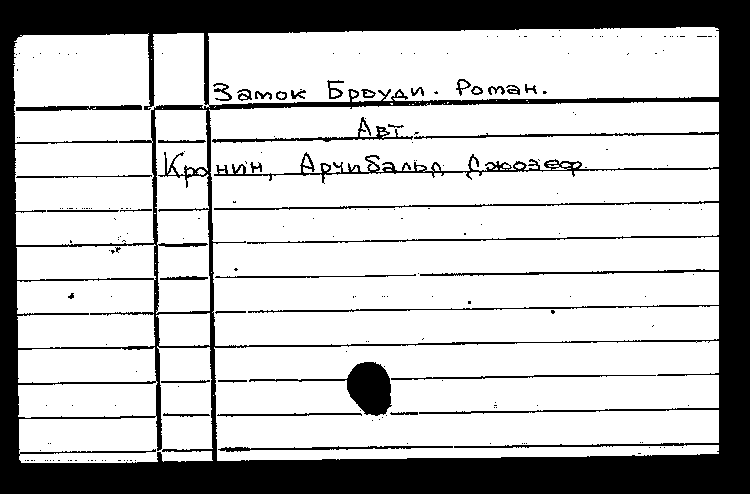 Замок Броуди. Роман.
Авт.
Кронин, Арчибальд Джозеф